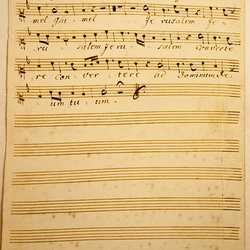 mel ghi mel Je rusalem Je
ru salem Jeru salem Converte
re Conver tere ad Dominum De
um tu um